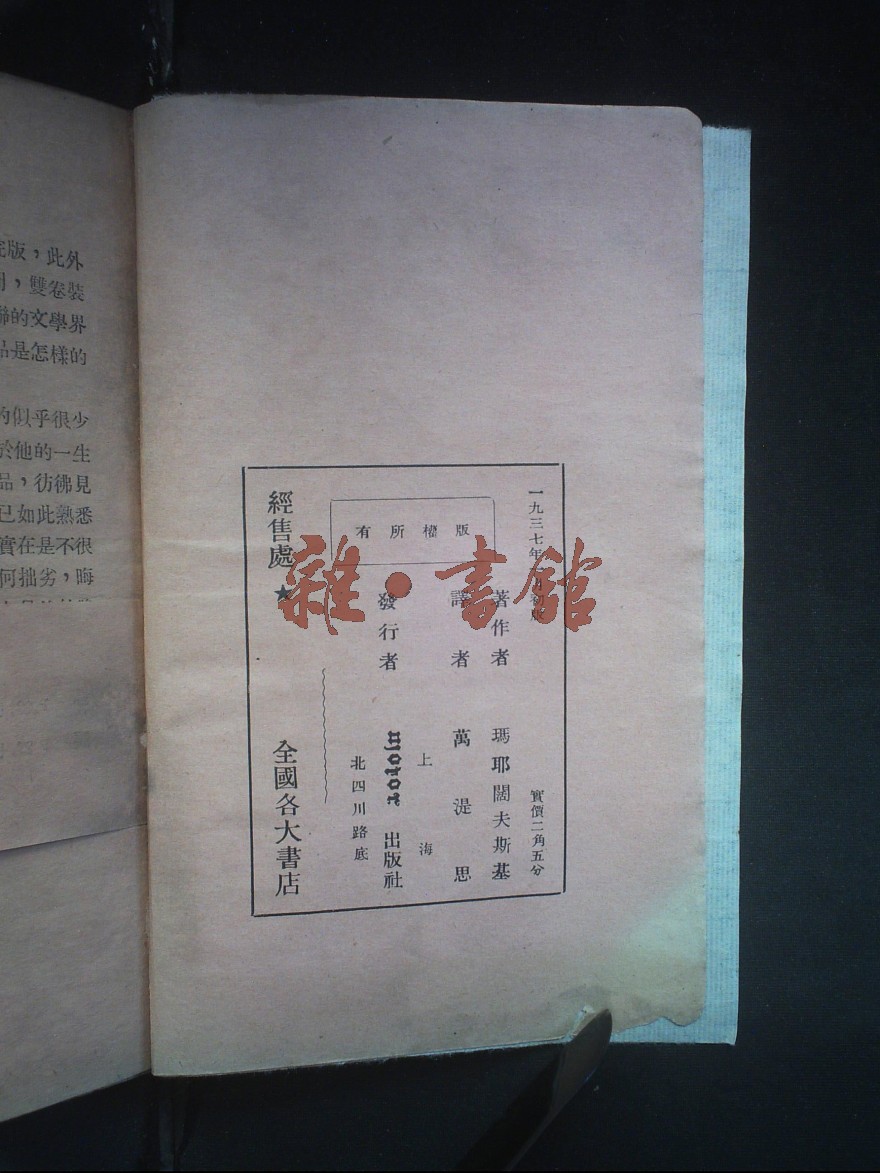 完版，此外
，雙卷裝
聯的文學界
品是怎樣的
的似乎很少
於他的一生
品，彷彿見
已如此熟悉
實在是不很
何拙劣，晦
一九三七年 月初版
實價二角五分
著作者 瑪耶闊夫斯基
譯者 萬湜思
版權所有
上海
發行者 motor 出版社
北四川路底
經售處★全國各大書店
雜·書館